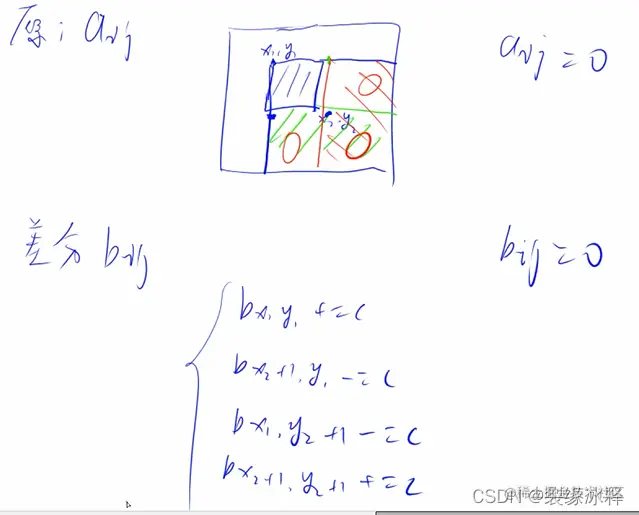 原: aij
aij = 0
x1, y1
x2, y2
差分 bij
bij = 0
bx1 y1 += c
bx2+1, y1 -= c
bx1, y2+1 -= c
bx2+1, y2+1 += c
CSDN @袁缘冰释